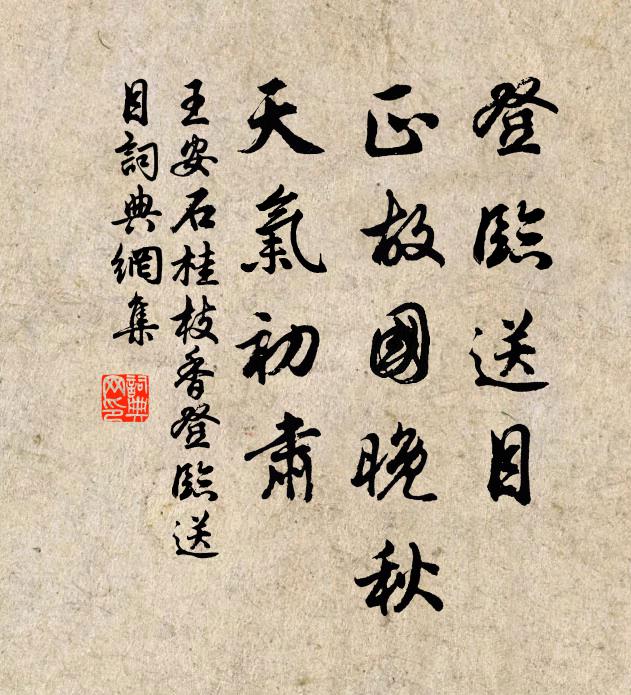 登臨送目
正故國晚秋
天氣初肅
王安石桂枝香登臨送
目詞典網集
詞典網印